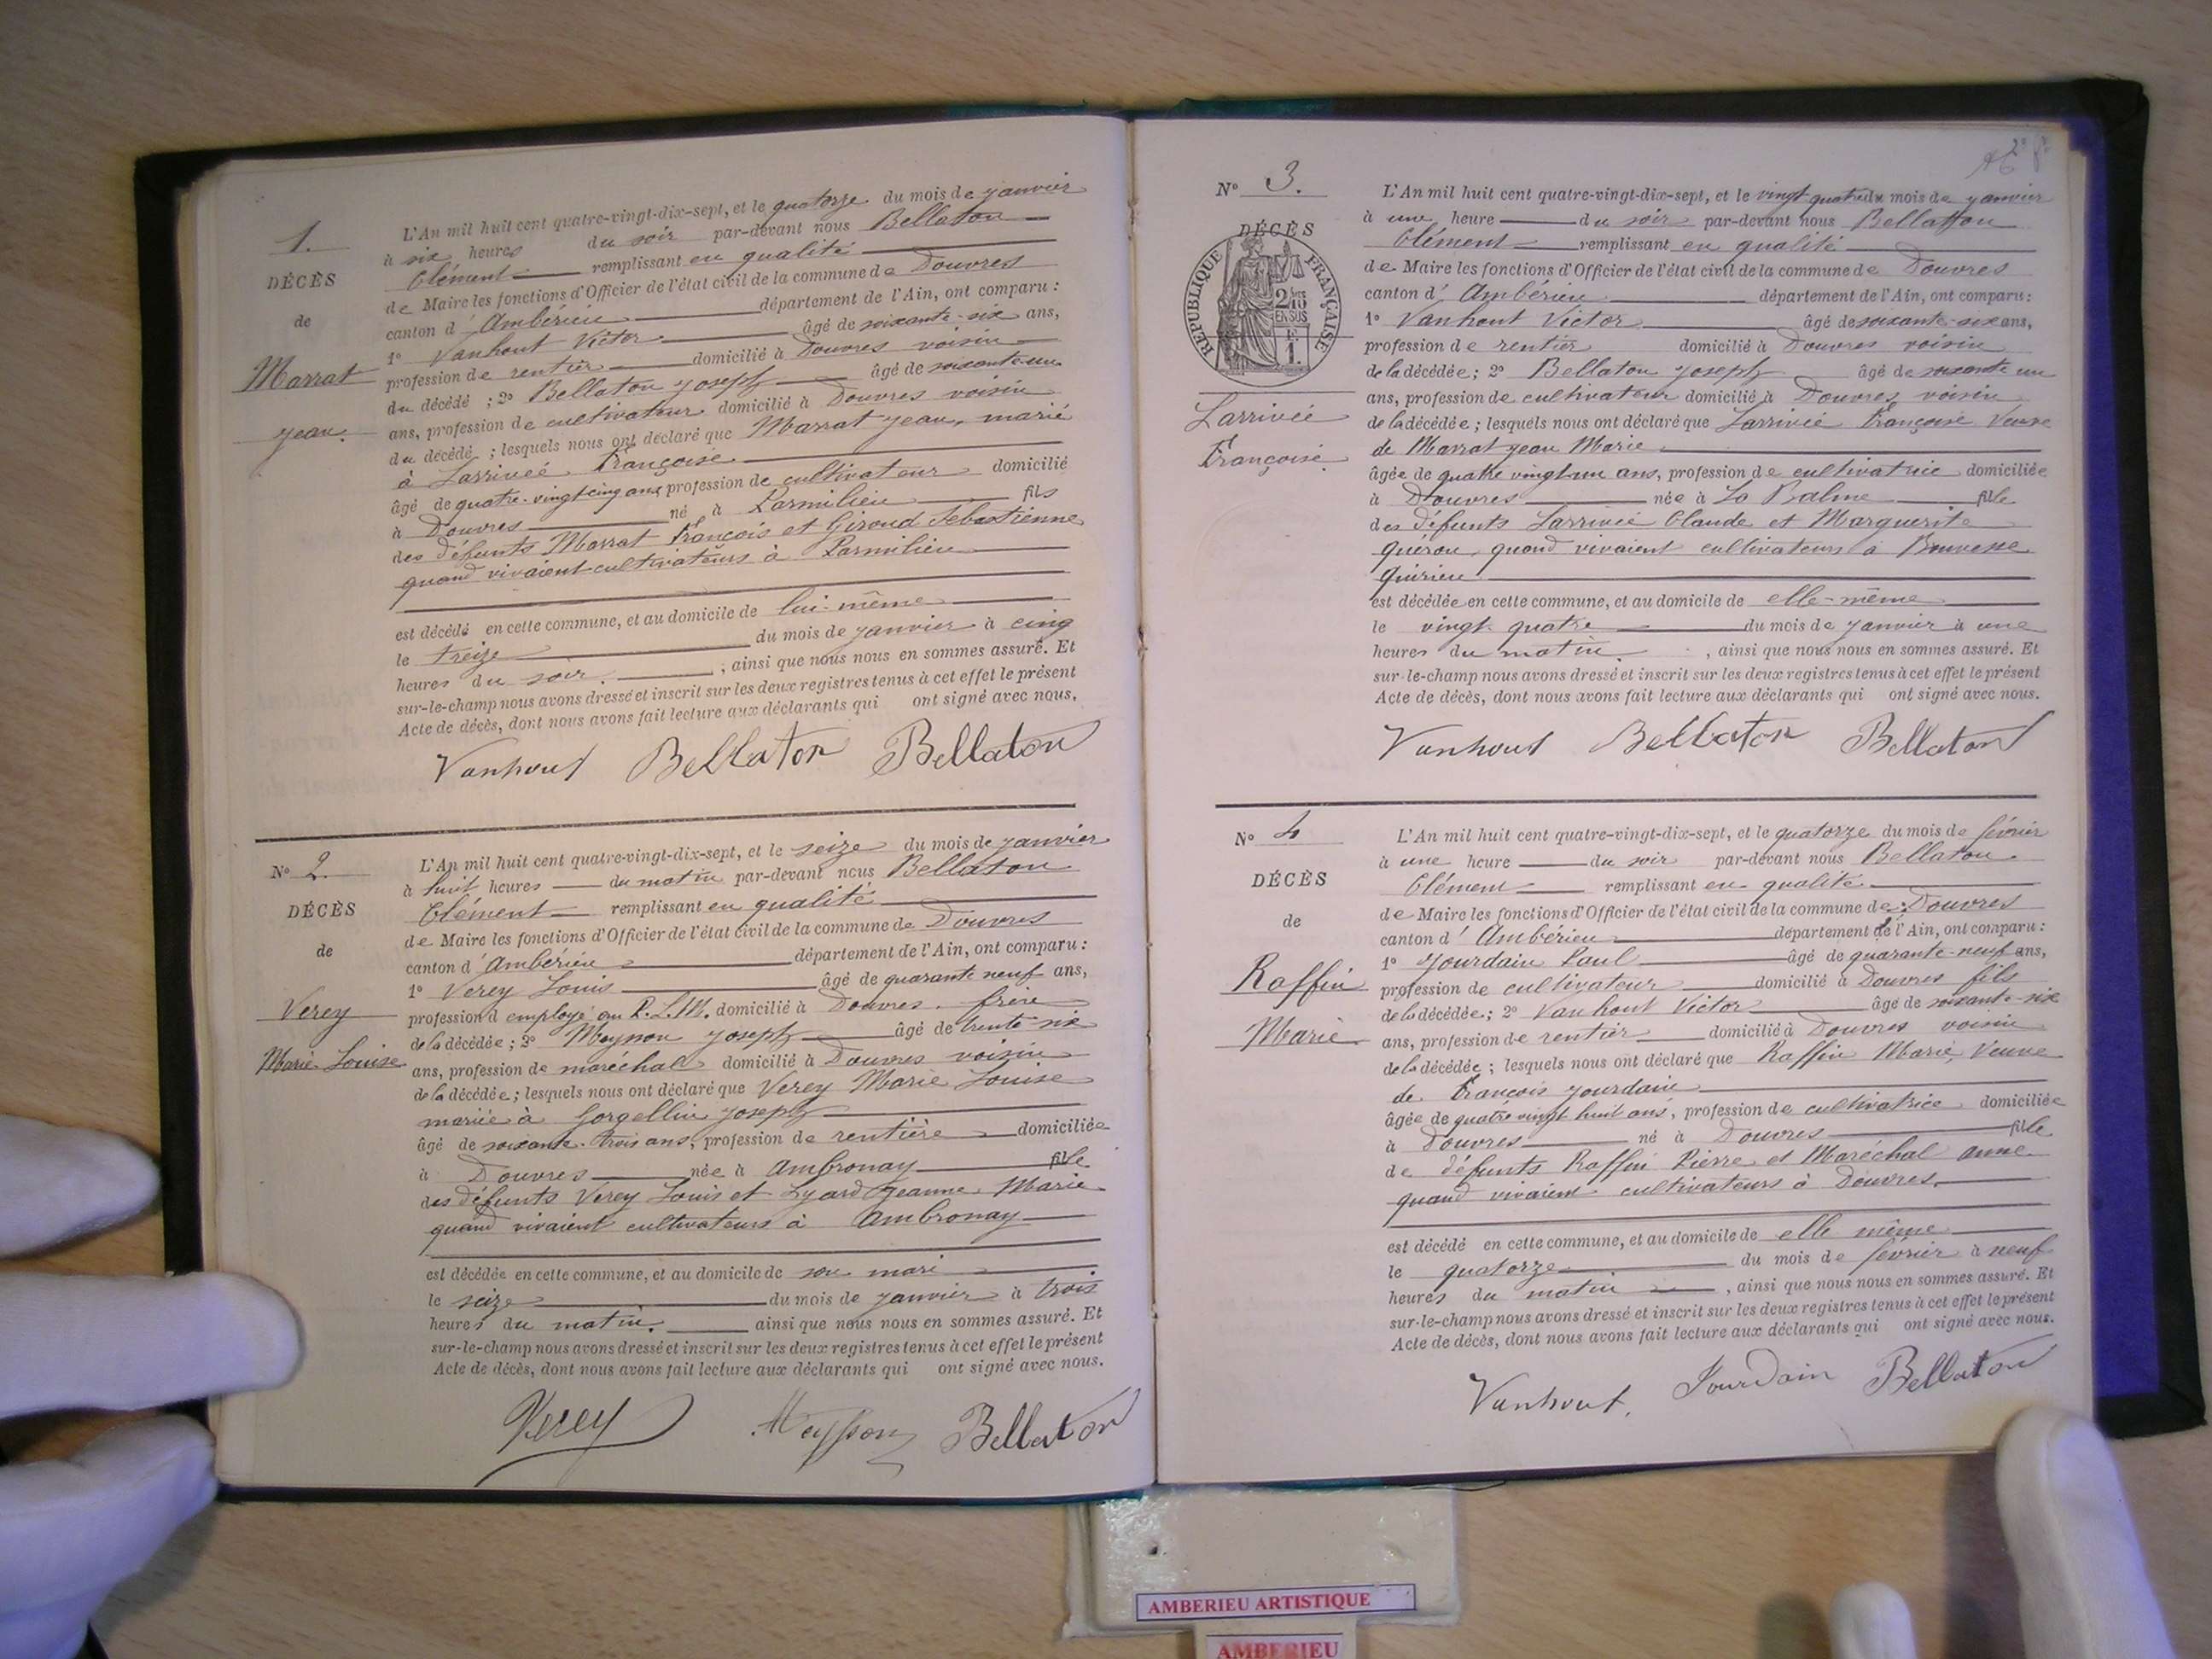 1.
DÉCÈS
de
Marrat
Jean.
L'An mil huit cent quatre-vingt-dix-sept, et le quatorze du mois de janvier
à six heures du soir par-devant nous Bellaton
Clément remplissant en qualité
de Maire les fonctions d'Officier de l'état civil de la commune de Douvres
canton d'Ambérieu département de l'Ain, ont comparu :
1º Vanhout Victor âgé de soixante-six ans,
profession de rentier domicilié à Douvres voisin
du décédé ; 2º Bellaton Joseph âgé de soixante-un
ans, profession de cultivateur domicilié à Douvres voisin
du décédé ; lesquels nous ont déclaré que Marrat Jean, marié
à Larrivée Françoise
âgé de quatre-vingt cinq ans, profession de cultivateur domicilié
à Douvres né à Parmilieu fils
des défunts Marrat François et Giroud Sébastienne
quand vivaient cultivateurs à Parmilieu
est décédé en cette commune, et au domicile de lui-même
le treize du mois de janvier à cinq
heures du soir. , ainsi que nous nous en sommes assuré. Et
sur-le-champ nous avons dressé et inscrit sur les deux registres tenus à cet effet le présent
Acte de décès, dont nous avons fait lecture aux déclarants qui ont signé avec nous.
Vanhout Bellaton Bellaton
Nº 2.
DÉCÈS
de
Verey
Marie Louise
L'An mil huit cent quatre-vingt-dix-sept, et le seize du mois de janvier
à huit heures du matin par-devant nous Bellaton
Clément remplissant en qualité
de Maire les fonctions d'Officier de l'état civil de la commune de Douvres
canton d'Ambérieu département de l'Ain, ont comparu :
1º Verey Louis âgé de quarante neuf ans,
profession d'employé au P.L.M. domicilié à Douvres frère
de la décédée ; 2º Meysson Joseph âgé de trente-six
ans, profession de maréchal domicilié à Douvres voisin
de la décédée ; lesquels nous ont déclaré que Verey Marie Louise
mariée à Gorgellin Joseph
âgé de soixante-trois ans, profession de rentière domiciliée
à Douvres née à Ambronay fille
des défunts Verey Louis et Lyard Jeanne Marie
quand vivaient cultivateurs à Ambronay
est décédée en cette commune, et au domicile de son mari
le seize du mois de janvier à trois
heures du matin. ainsi que nous nous en sommes assuré. Et
sur-le-champ nous avons dressé et inscrit sur les deux registres tenus à cet effet le présent
Acte de décès, dont nous avons fait lecture aux déclarants qui ont signé avec nous.
Verey Meysson Bellaton
Nº 3.
DÉCÈS
RÉPUBLIQUE FRANÇAISE
2/10 EN SUS
1.
Larrivée
Françoise
L'An mil huit cent quatre-vingt-dix-sept, et le vingt quatre du mois de janvier
à une heure du soir par-devant nous Bellaton
Clément remplissant en qualité
de Maire les fonctions d'Officier de l'état civil de la commune de Douvres
canton d'Ambérieu département de l'Ain, ont comparu :
1º Vanhout Victor âgé de soixante-six ans,
profession de rentier domicilié à Douvres voisin
de la décédée ; 2º Bellaton Joseph âgé de soixante un
ans, profession de cultivateur domicilié à Douvres, voisin
de la décédée ; lesquels nous ont déclaré que Larrivée Françoise Veuve
de Marrat Jean Marie
âgée de quatre vingt-un ans, profession de cultivatrice domiciliée
à Douvres née à La Balme fille
des défunts Larrivée Claude et Marguerite
Quérou, quand vivaient cultivateurs à Bouvesse
Quirieu
est décédée en cette commune, et au domicile de elle-même
le vingt-quatre du mois de janvier à une
heures du matin. , ainsi que nous nous en sommes assuré. Et
sur-le-champ nous avons dressé et inscrit sur les deux registres tenus à cet effet le présent
Acte de décès, dont nous avons fait lecture aux déclarants qui ont signé avec nous.
Vanhout Bellaton Bellaton
Nº 4
DÉCÈS
de
Raffin
Marie
L'An mil huit cent quatre-vingt-dix-sept, et le quatorze du mois de février
à une heure du soir par-devant nous Bellaton
Clément remplissant en qualité
de Maire les fonctions d'Officier de l'état civil de la commune de Douvres
canton d'Ambérieu département de l'Ain, ont comparu :
1º Jourdain Paul âgé de quarante-neuf ans,
profession de cultivateur domicilié à Douvres fils
de la décédée ; 2º Vanhout Victor âgé de soixante-six
ans, profession de rentier domicilié à Douvres voisin
de la décédée ; lesquels nous ont déclaré que Raffin Marie, Veuve
de François Jourdain
âgée de quatre vingt huit ans, profession de cultivatrice domiciliée
à Douvres né à Douvres fille
de défunts Raffin Pierre et Maréchal Anne
quand vivaient cultivateurs à Douvres.
est décédé en cette commune, et au domicile de elle même
le quatorze du mois de février à neuf
heures du matin , ainsi que nous nous en sommes assuré. Et
sur-le-champ nous avons dressé et inscrit sur les deux registres tenus à cet effet le présent
Acte de décès, dont nous avons fait lecture aux déclarants qui ont signé avec nous.
Vanhout. Jourdain Bellaton
AMBERIEU ARTISTIQUE
AMBERIEU